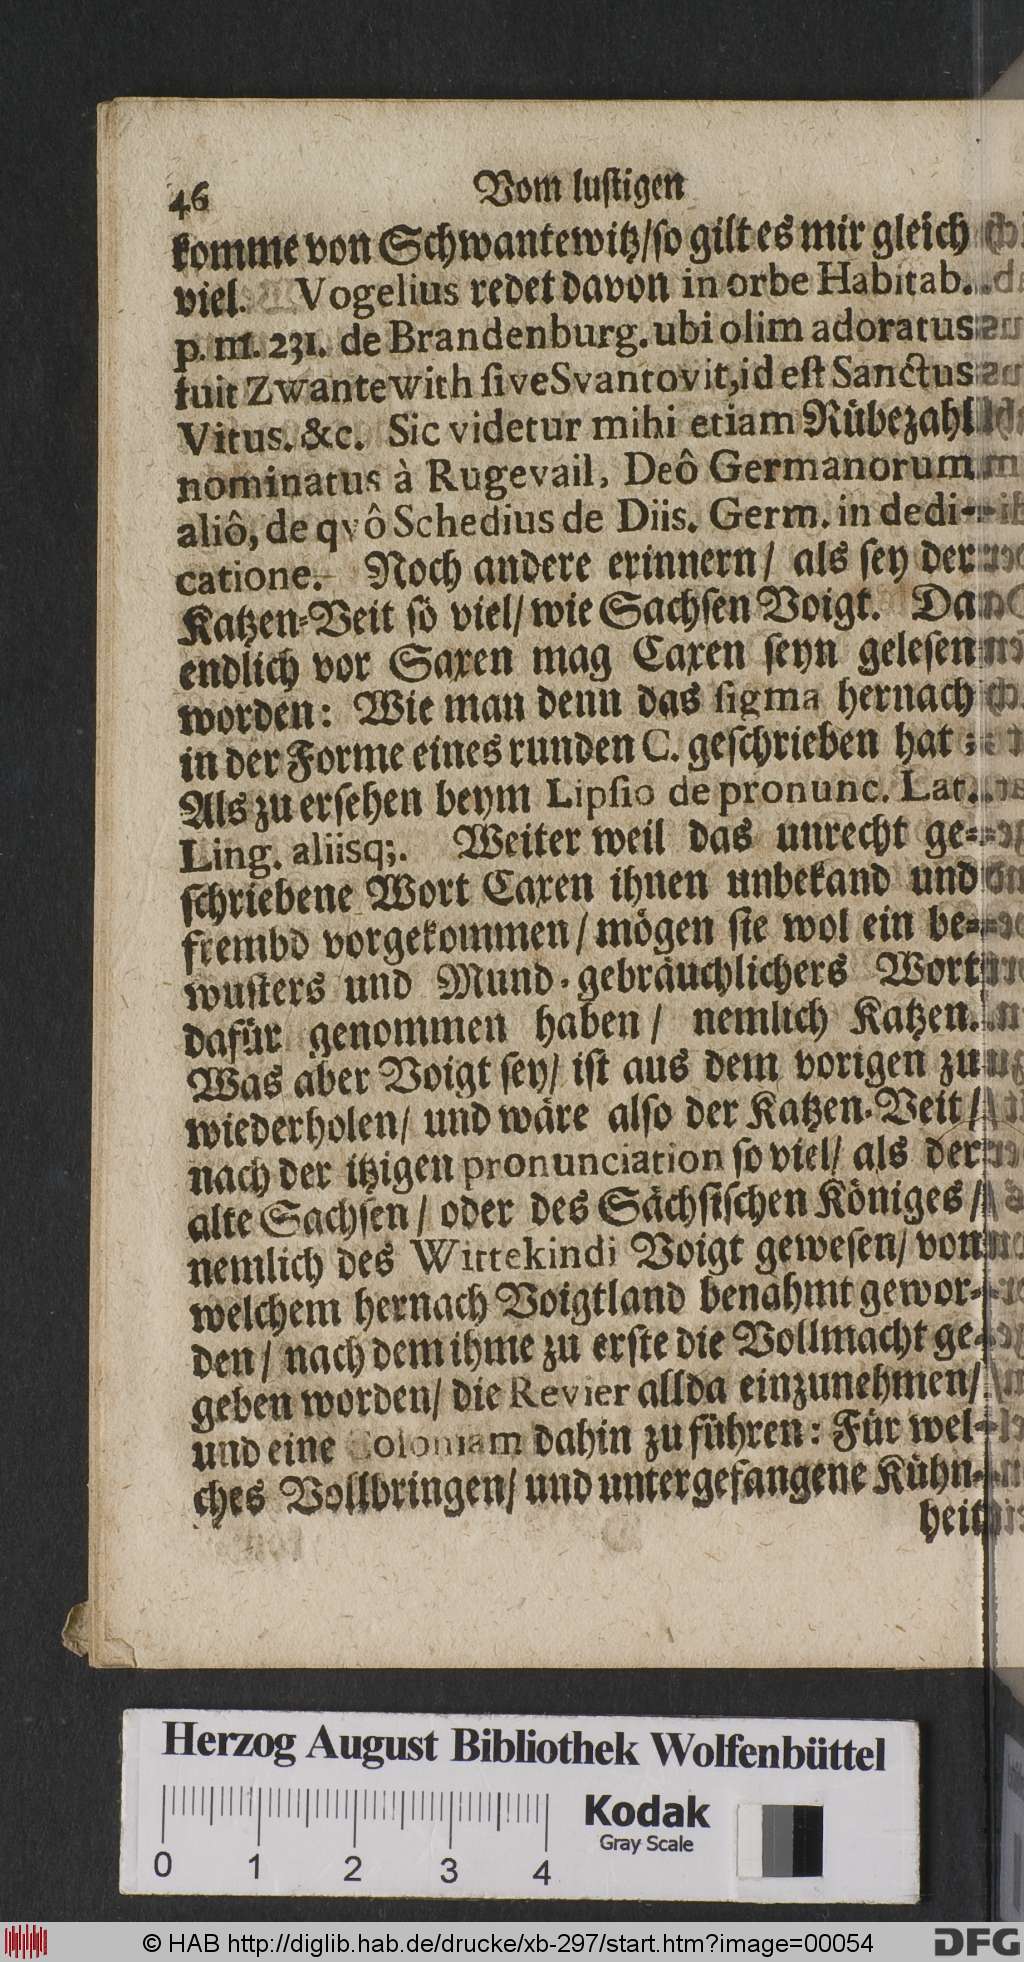 46 Vom lustigen
komme von Schwantewitz/ so gilt es mir gleich
viel. Vogelius redet davon in orbe Habitab.
p. m. 231. de Brandenburg. ubi olim adoratus
fuit Zwantewith sive Svantovit, id est Sanctus
Vitus. &c. Sic videtur mihi etiam Rübezahl
nominatus à Rugevail, Deô Germanorum
aliô, de qvô Schedius de Diis. Germ. in dedi-
catione. Noch andere erinnern/ als sey der
Katzen-Veit so viel/ wie Sachsen Voigt. Da
endlich vor Saxen mag Caxen seyn gelesen
worden: Wie man denn das sigma hernach
in der Forme eines runden C. geschrieben hat;
Als zu ersehen beym Lipsio de pronunc. Lat.
Ling. aliisq;. Weiter weil das unrecht ge-
schriebene Wort Caxen ihnen unbekand und
frembd vorgekommen/ mögen sie wol ein be-
wusters und Mund-gebräuchlichers Wort
dafür genommen haben/ nemlich Katzen.
Was aber Voigt sey/ ist aus dem vorigen zu
wiederholen/ und wäre also der Katzen-Veit/
nach der itzigen pronunciation so viel/ als der
alte Sachsen/ oder des Sächsischen Königes/
nemlich des Wittekindi Voigt gewesen/ von
welchem hernach Voigtland benahmt gewor-
den/ nach dem ihme zu erste die Vollmacht ge-
geben worden/ die Revier allda einzunehmen/
und eine Coloniam dahin zu führen: Für wel-
ches Vollbringen/ und untergefangene Kühn-
heit
Herzog August Bibliothek Wolfenbüttel
Kodak
Gray Scale
0 1 2 3 4
© HAB http://diglib.hab.de/drucke/xb-297/start.htm?image=00054
DFG